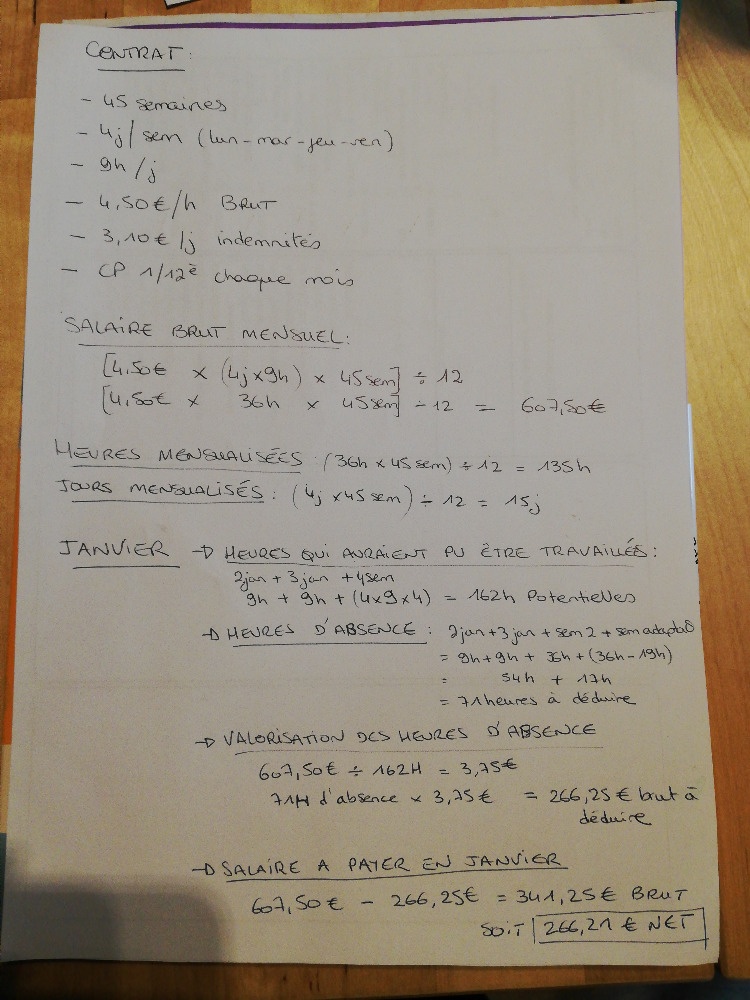 CONTRAT :
- 45 semaines
- 4j/sem (lun-mar-jeu-ven)
- 9h/j
- 4,50€/h BRUT
- 3,10€/j indemnités
- CP 1/12è chaque mois
SALAIRE BRUT MENSUEL:
[4,50€ x (4jx9h) x 45sem] ÷ 12
[4,50€ x 36h x 45sem] ÷ 12 = 607,50€
HEURES MENSUALISÉES : (36h x 45 sem) ÷ 12 = 135h
JOURS MENSUALISÉS : (4j x 45 sem) ÷ 12 = 15j
JANVIER → HEURES QUI AURAIENT PU ÊTRE TRAVAILLÉS :
2jan + 3jan + 4sem
9h + 9h + (4x9x4) = 162h Potentielles
→ HEURES D'ABSENCE : 2jan+3jan + sem2 + semadapta8
= 9h+9h + 36h + (36h-19h)
= 54h + 17h
= 71heures à déduire
→ VALORISATION DES HEURES D'ABSENCE
607,50€ ÷ 162H = 3,75€
71H d'absence x 3,75€ = 266,25€ brut à
déduire
→ SALAIRE A PAYER EN JANVIER
607,50€ - 266,25€ = 341,25€ BRUT
SOIT 266,21 € NET